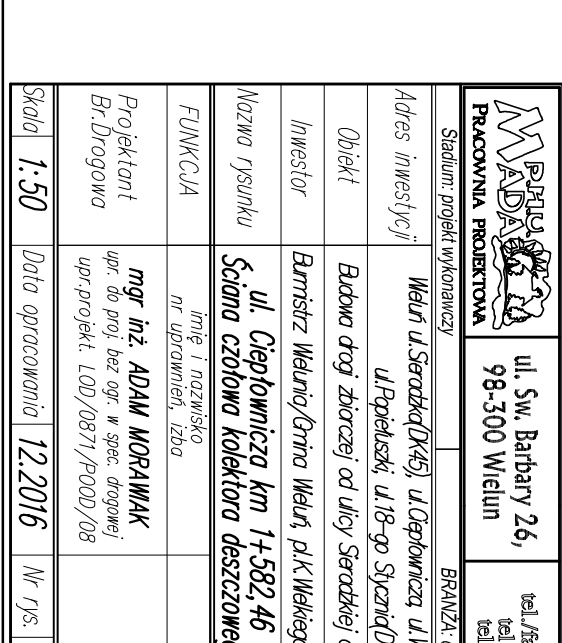 P.H.U.
MADA
PRACOWNIA PROJEKTOWA
ul. Sw. Barbary 26,
98-300 Wielun
tel./fa
tel
tel
Stadium: projekt wykonawczy
BRANŻA:
Adres inwestycji
Wieluń ul.Sieradzka(DK45), ul.Ciepłownicza, ul.W
ul.Popiełuszki, ul.18-go Stycznia(D
Obiekt
Budowa drogi zbiorczej od ulicy Sieradzkiej d
Inwestor
Burmistrz Wielunia/Gmina Wieluń, pl.K.Wielkieg
Nazwa rysunku
ul. Ciepłownicza km 1+582,46
Ściana czołowa kolektora deszczoweg
FUNKCJA
imię i nazwisko
nr uprawnień, izba
Projektant
Br.Drogowa
mgr inż. ADAM MORAWIAK
upr. do proj. bez ogr. w spec. drogowej
upr.projekt. LOD/0871/POOD/08
Skala
1:50
Data opracowania
12.2016
Nr rys.